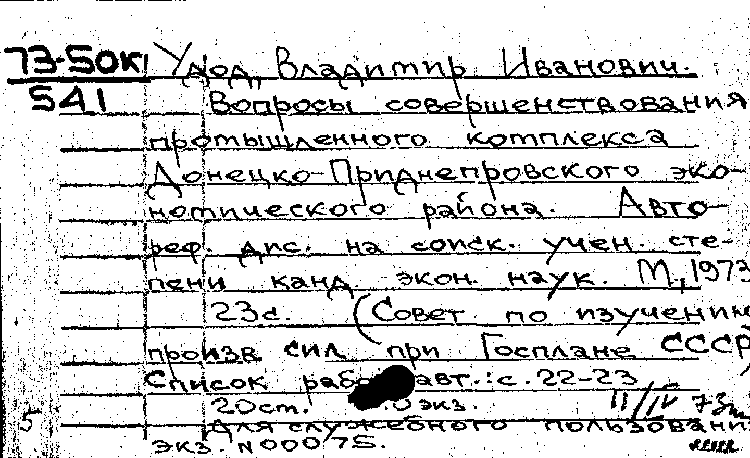 73-50к
541
Удод, Владимир Иванович.
Вопросы совершенствования
промышленного комплекса
Донецко-Приднепровского эко-
номического района. Авто-
реф. дис. на соиск. учен. сте-
пени канд экон. наук. М, 1973
23с. (Совет по изучению
произв. сил при Госплане СССР)
Список работ авт.: с. 22-23
20ст. экз. 11/IV 73
Для служебного пользования
экз. N 000075.
5